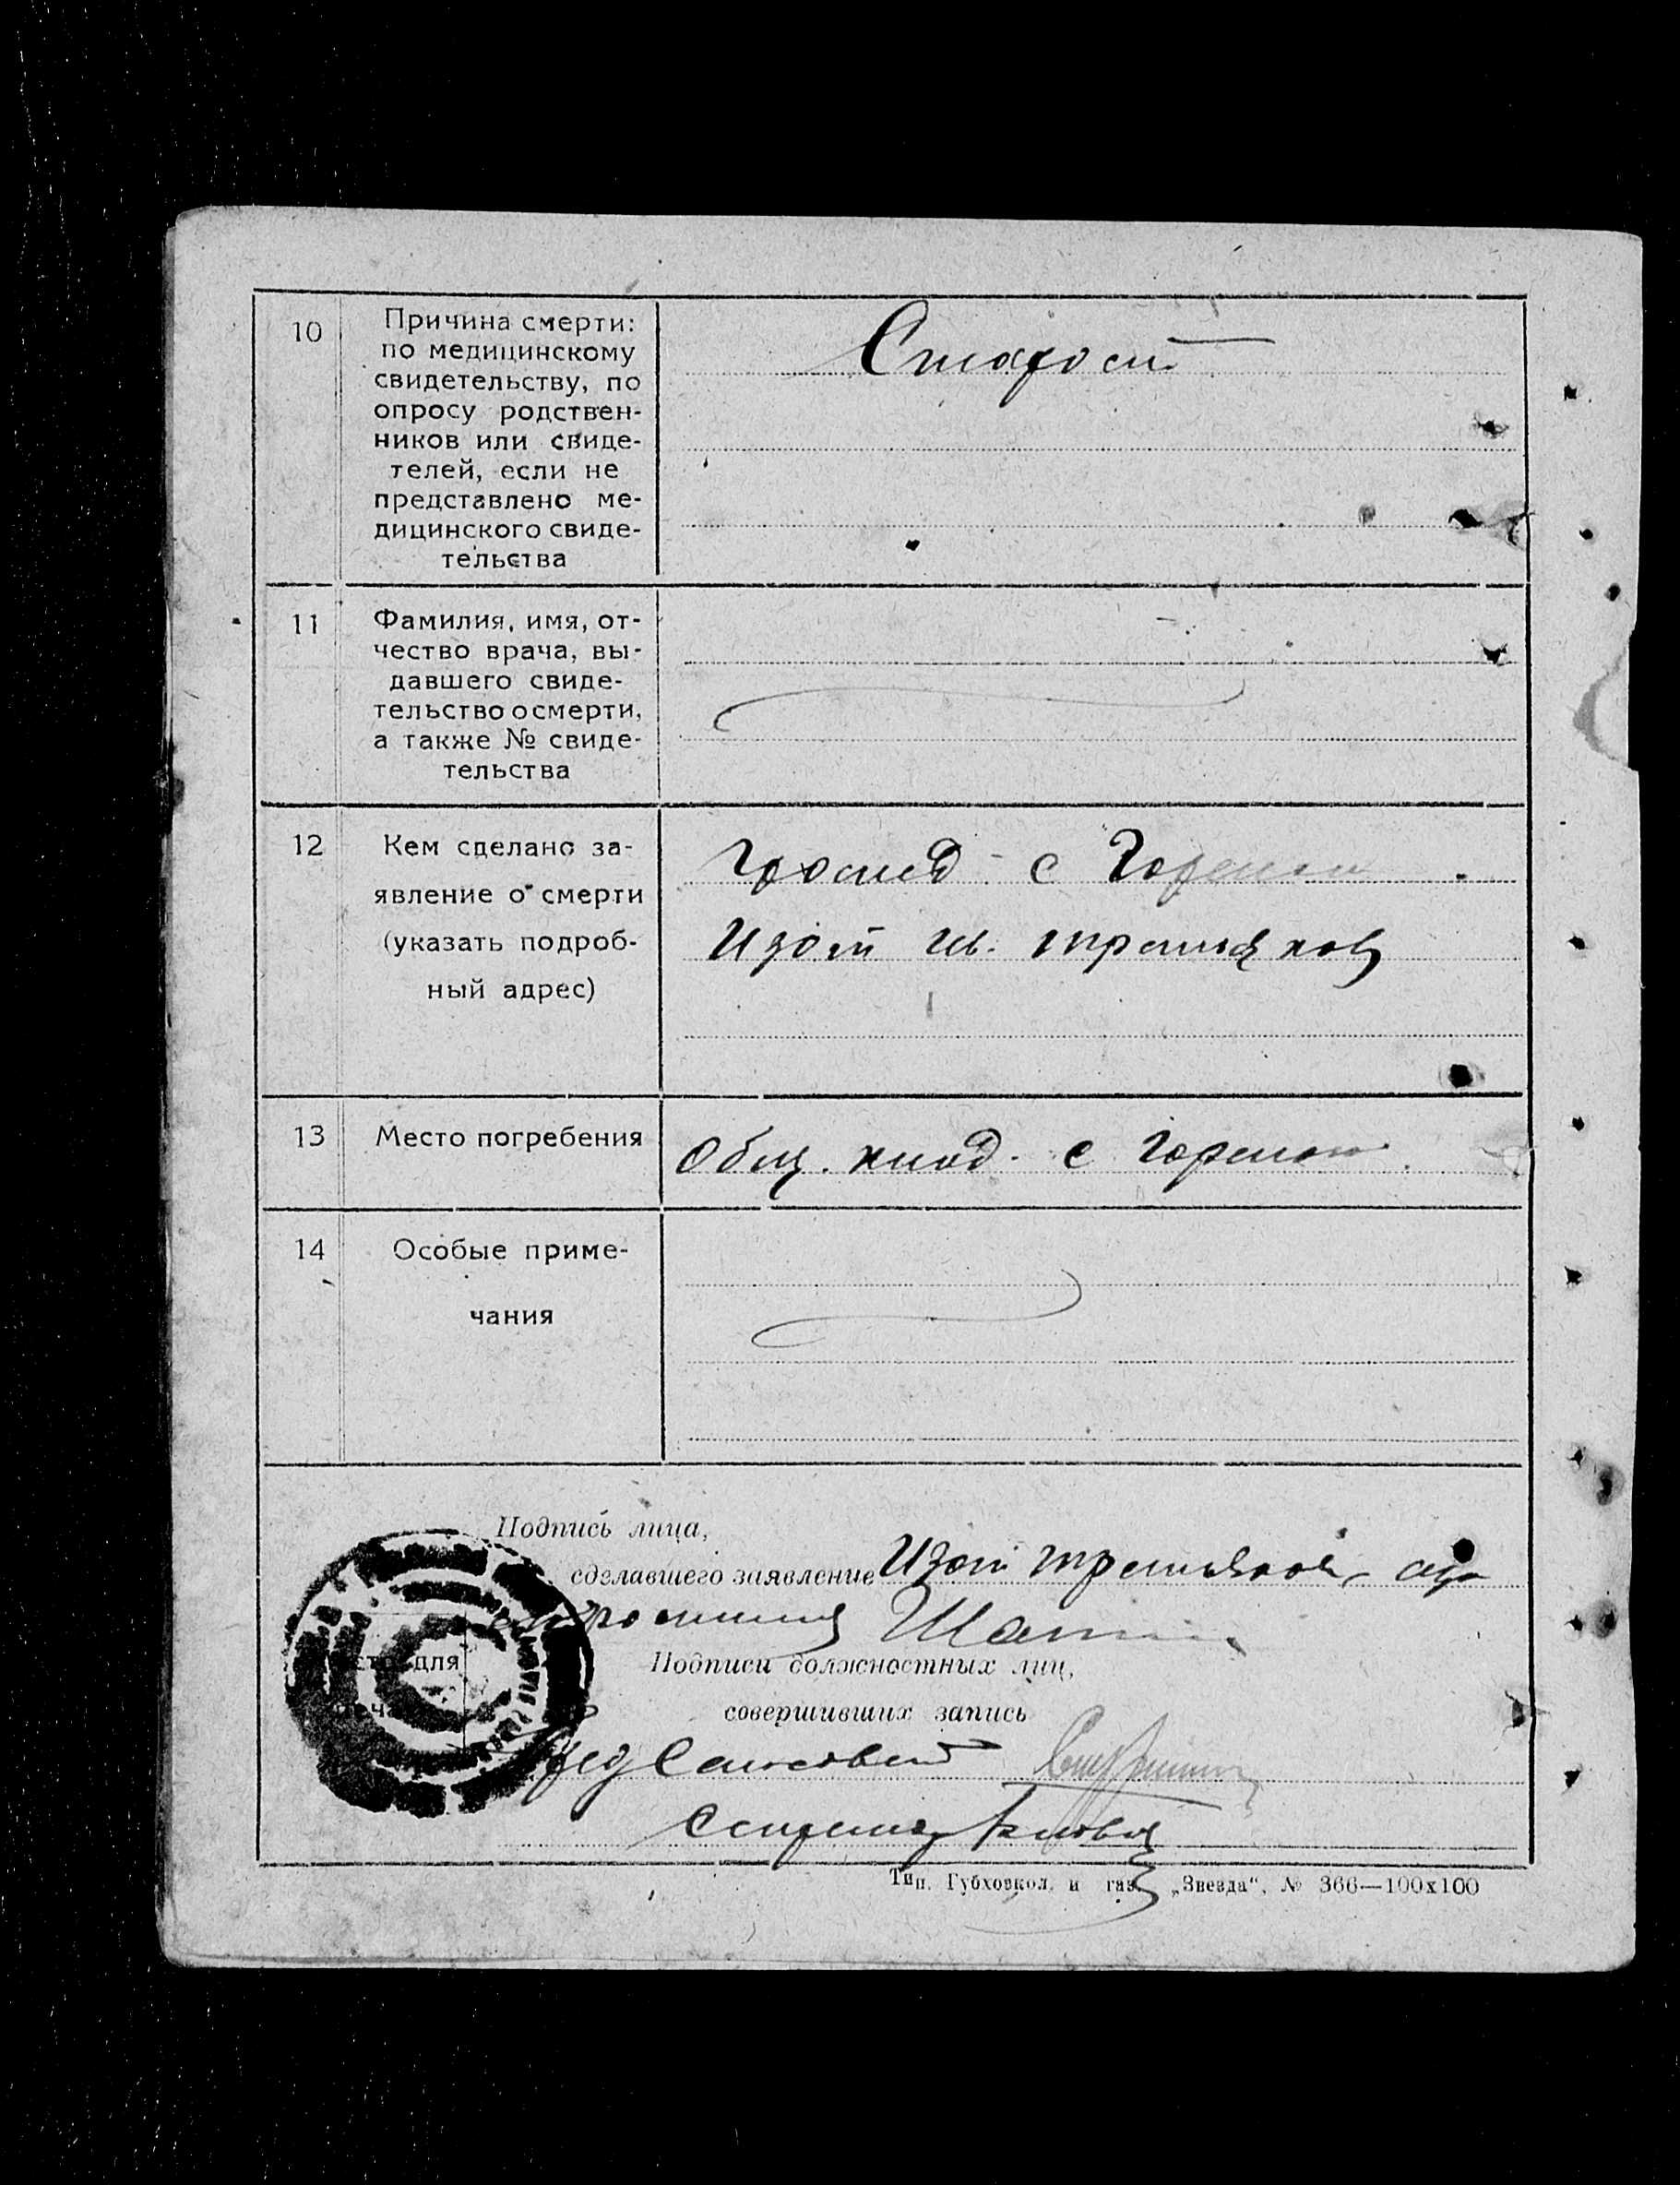 10
Причина смерти:
по медицинскому
свидетельству, по
опросу родствен-
ников или свиде-
телей, если не
представлено ме-
дицинского свиде-
тельства
Старост
11
Фамилия, имя, от-
чество врача, вы-
давшего свиде-
тельство о смерти,
а также № свиде-
тельства
12
Кем сделано за-
явление о смерти
(указать подроб-
ный адрес)
с
Изот Ив. Третьяков
13
Место погребения
Общ. клад. с
14
Особые приме-
чания
Подпись лица,
сделавшего заявление Изот Третьяков
Подписи должностных лиц,
совершивших запись
Пред Сельсовет
Секретарь
Тип. Губховкол. и газ. „Звезда“, № 366—100х100